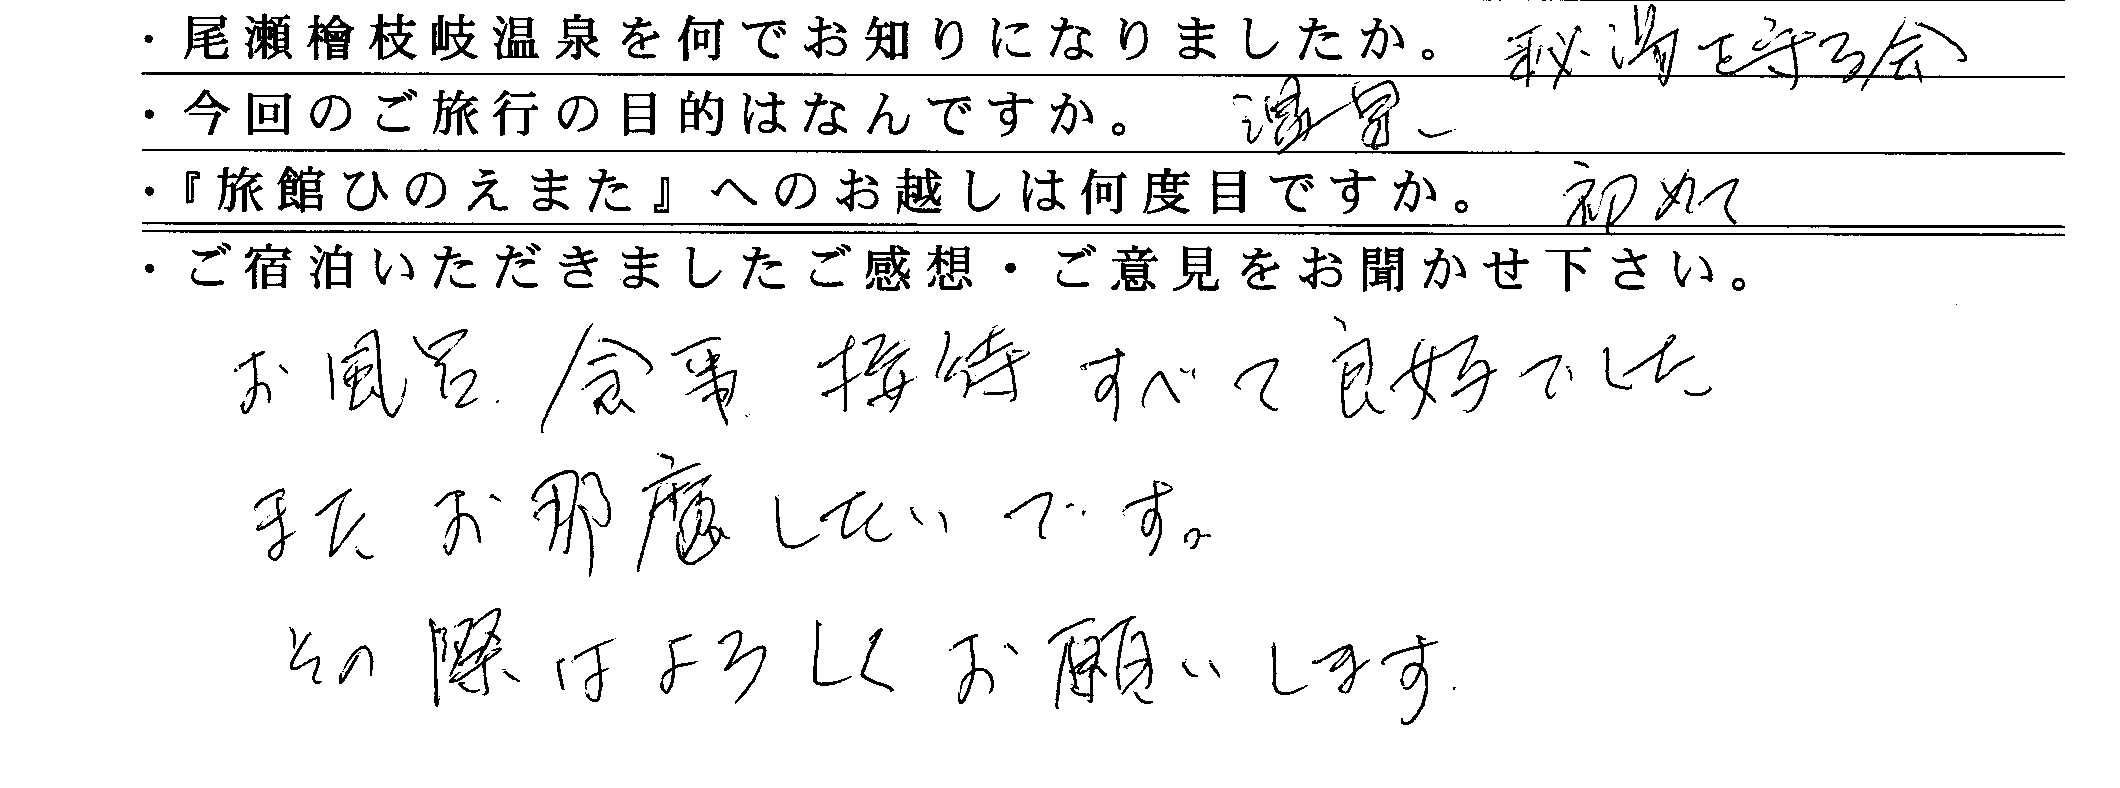 ・尾瀬檜枝岐温泉を何でお知りになりましたか。 秘湯を守る会
・今回のご旅行の目的はなんですか。 温泉
・『旅館ひのえまた』へのお越しは何度目ですか。 初めて
・ご宿泊いただきましたご感想・ご意見をお聞かせ下さい。
お風呂、食事、接待すべて良好でした
またお邪魔したいです。
その際はよろしくお願いします.